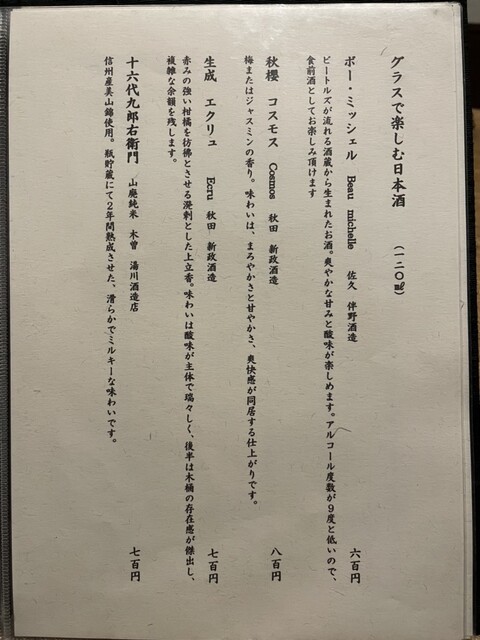 グラスで楽しむ日本酒 (一二〇㎖)
ボー・ミッシェル Beau michelle 佐久 伴野酒造 六百円
ビートルズが流れる酒蔵から生まれたお酒。爽やかな甘みと酸味が楽しめます。アルコール度数が9度と低いので、
食前酒としてお楽しみ頂けます
秋櫻 コスモス Cosmos 秋田 新政酒造 八百円
梅またはジャスミンの香り。味わいは、まろやかさと甘やかさ、爽快感が同居する仕上がりです。
生成 エクリュ Ecru 秋田 新政酒造 七百円
赤みの強い柑橘を彷彿とさせる溌剌とした上立香。味わいは酸味が主体で瑞々しく、後半は木桶の存在感が傑出し、
複雑な余韻を残します。
十六代九郎右衛門 山廃純米 木曽 湯川酒造店 七百円
信州産美山錦使用。瓶貯蔵にて2年間熟成させた、滑らかでミルキーな味わいです。